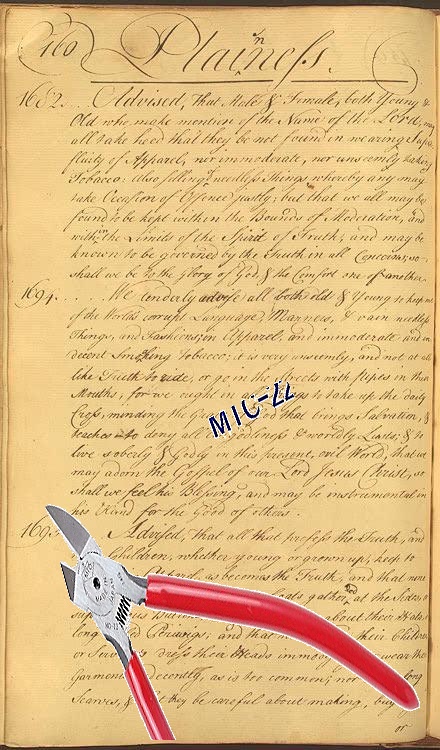 160 Plainness.
1682. . . Advised, That Male & Female, both Young &
Old who make mention of the Name of the Lord, may
all take heed that they be not found in wearing Supe
fluity of Apparel, nor immoderate, nor unseemly taking
Tobacco: Also selling needless Things whereby any may
take Occasion of Offence justly; but that we all may be
found to be kept within the Bounds of Moderation, and
within the Limits of the Spirit of Truth; and may be
known to be governed by the Truth in all Concerns, so
shall we be to the Glory of God, & the Comfort one of another.
1694. . . . . . We tenderly advise all both old & Young to keep
of the World's corrupt Language, Manners, & vain needless
Things, and Fashions in Apparel, and immoderate and in
decent Smoking Tobacco; it is very unseemly, and not at all
like Truth to ride, or go in the Streets with pipes in their
Mouths, for we ought in to take up the daily
Cross, minding the that brings Salvation, &
teaches to deny all Ungodliness & worldly Lusts; & to
live soberly & Godly in this present, evil World, that we
may adorn the Gospel of our Lord Jesus Christ, so
shall we feel his Blessing, and may be instrumental in
his Hand for the Good of others.
MIC-22
1695. Advised, that all that profess the Truth, and
Children, whether young or grown up, keep to
as becomes the Truth, and that none
gather'd at the Sides, or
about their
long and that their Children
or dress their Heads wear their
Garments as is too common; nor long
Scarves, & they be careful about making, buy
or